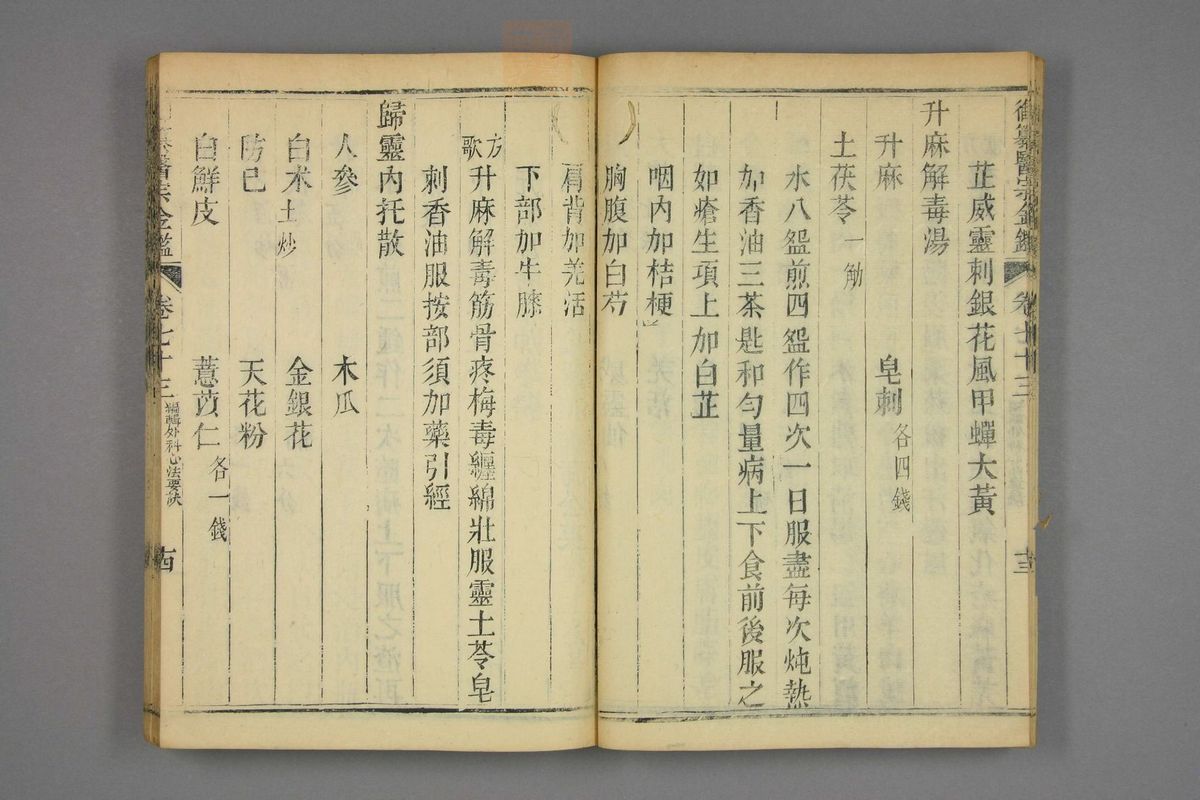 御纂醫宗金鑑 卷七十三
芷威靈刺銀花風甲蟬大黃
升麻解毒湯
升麻 皂刺各四錢
土茯苓一觔
水八盌煎四盌作四次一日服盡每次炖熱
加香油三茶匙和勻量病上下食前後服之
如瘡生項上加白芷
咽內加桔梗
胸腹加白芍
肩背加羌活
下部加牛膝
方歌 升麻解毒筋骨疼梅毒纏綿壯服靈土苓皂
刺香油服按部須加藥引經
歸靈內托散
人參 木瓜
白朮土炒 金銀花
防己 天花粉
白鮮皮 薏苡仁各一錢
醫宗金鑑 卷七十三 編輯外科心法要訣 十四